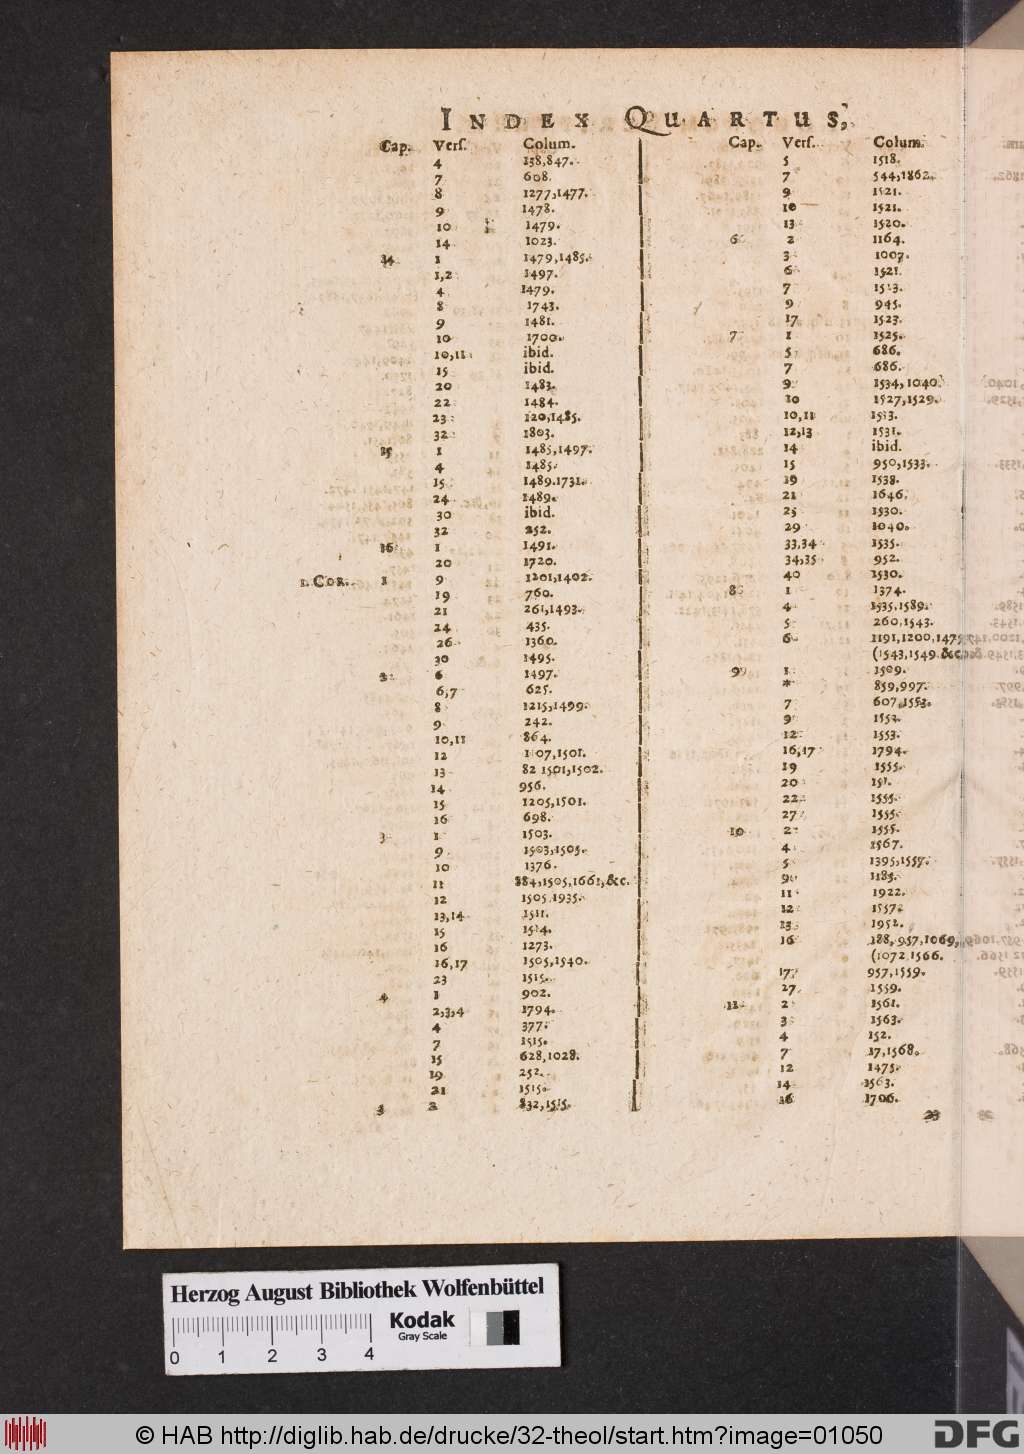 INDEX QUARTUS,
Cap. Vers. Colum.
4 158,847.
7 608.
8 1277,1477.
9 1478.
10 1479.
14 1023.
14 1 1479,1485.
1,2 1497.
4 1479.
8 1743.
9 1481.
10 1700.
10,11 ibid.
15 ibid.
20 1483.
22 1484.
23 120,1485.
32 1803.
15 1 1485,1497.
4 1485.
15 1489.1731.
24 1489.
30 ibid.
32 252.
16 1 1491.
20 1720.
1. COR. 1 9 1201,1402.
19 760.
21 261,1493.
24 435.
26 1360.
30 1495.
2 6 1497.
6,7 625.
8 1215,1499.
9 242.
10,11 864.
12 1107,1501.
13 82 1501,1502.
14 956.
15 1205,1501.
16 698.
3 1 1503.
9 1503,1505.
10 1376.
11 884,1505,1661,&c.
12 1505,1935.
13,14 1511.
15 1514.
16 1273.
16,17 1505,1540.
23 1515.
4 1 902.
2,3,4 1794.
4 377.
7 1515.
15 628,1028.
19 252.
21 1515.
5 2 832,1515.
Cap. Vers. Colum.
5 1518.
7 544,1862.
9 1521.
10 1521.
13 1520.
6 2 1164.
3 1007.
6 1521.
7 1523.
9 945.
17 1523.
7 1 1525.
5 686.
7 686.
9 1534,1040.
10 1527,1529.
10,11 1533.
12,13 1531.
14 ibid.
15 950,1533.
19 1538.
21 1646.
25 1530.
29 1040.
33,34 1535.
34,35 952.
40 1530.
8 1 1374.
4 1535,1589.
5 260,1543.
6 1191,1200,1475
(1543,1549 &c.
9 1 1509.
* 859,997.
7 607,1553.
9 1552.
12 1553.
16,17 1794.
19 1555.
20 151.
22 1555.
27 1555.
10 2 1555.
4 1567.
5 1395,1557.
9 1185.
11 1922.
12 1557.
13 1952.
16 188, 957,1069,
(1072,1566.
17 957,1559.
27 1559.
11 2 1561.
3 1563.
4 152.
7 17,1568.
12 1475.
14 1563.
16 1706.
23
Herzog August Bibliothek Wolfenbüttel
0 1 2 3 4
Kodak
Gray Scale
© HAB http://diglib.hab.de/drucke/32-theol/start.htm?image=01050
DFG